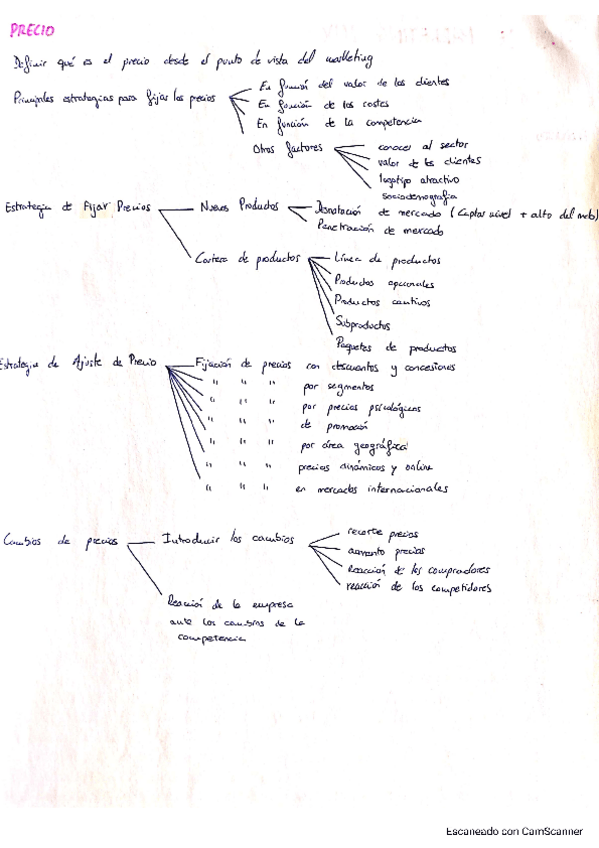 PRECIO
Definir qué es el precio desde el punto de vista del marketing
Principales estrategias para fijar los precios
En función del valor de los clientes
En función de los costes
En función de la competencia
Otros factores
conocer al sector
valor de los clientes
logotipo atractivo
sociodemografía
Estrategia de Fijar Precios
Nuevos Productos
de mercado (Captar nivel + alto del
Penetración de mercado
Cartera de productos
Línea de productos
Productos opcionales
Productos cautivos
Subproductos
Paquetes de productos
Estrategia de Ajuste de Precio
Fijación de precios con descuentos y concesiones
" " " por segmentos
" " " por precios psicológicos
" " " de promoción
" " " por área geográfica
" " " precios dinámicos y online
" " " en mercados internacionales
Cambios de precios
Introducir los cambios
recorte precios
aumento precios
Reacción de los compradores
reacción de los competidores
Reacción de la empresa
ante los cambios de la
competencia
Escaneado con CamScanner